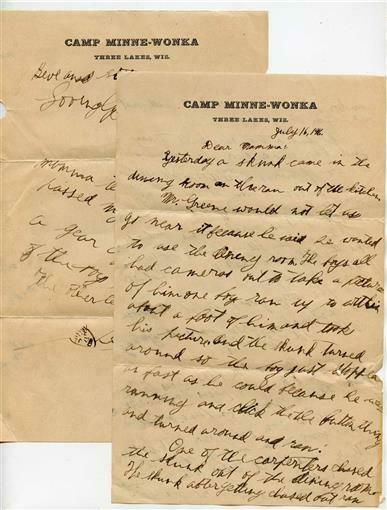 CAMP MINNE-WONKA
THREE LAKES, WIS.
Love and
Lovingly
Momma
passed m
a year
of the boy
the
CAMP MINNE-WONKA
THREE LAKES, WIS.
July 16, 192
Dear Mamma:
Yesterday a skunk came in the
dining room an then ran out of the kitchen
Mr. Greene would not let us
go near it because he said he wanted
to use the dining room. The boys all
had cameras out to take a picture
of him one boy ran up to within
a foot of him and took
his picture and the skunk turned
around so the boy just
as fast as he could because he was
running and click the the button thing
and turned around and ran.
One of the carpenters chased
the skunk out of the dining room
The skunk after getting chased out ran